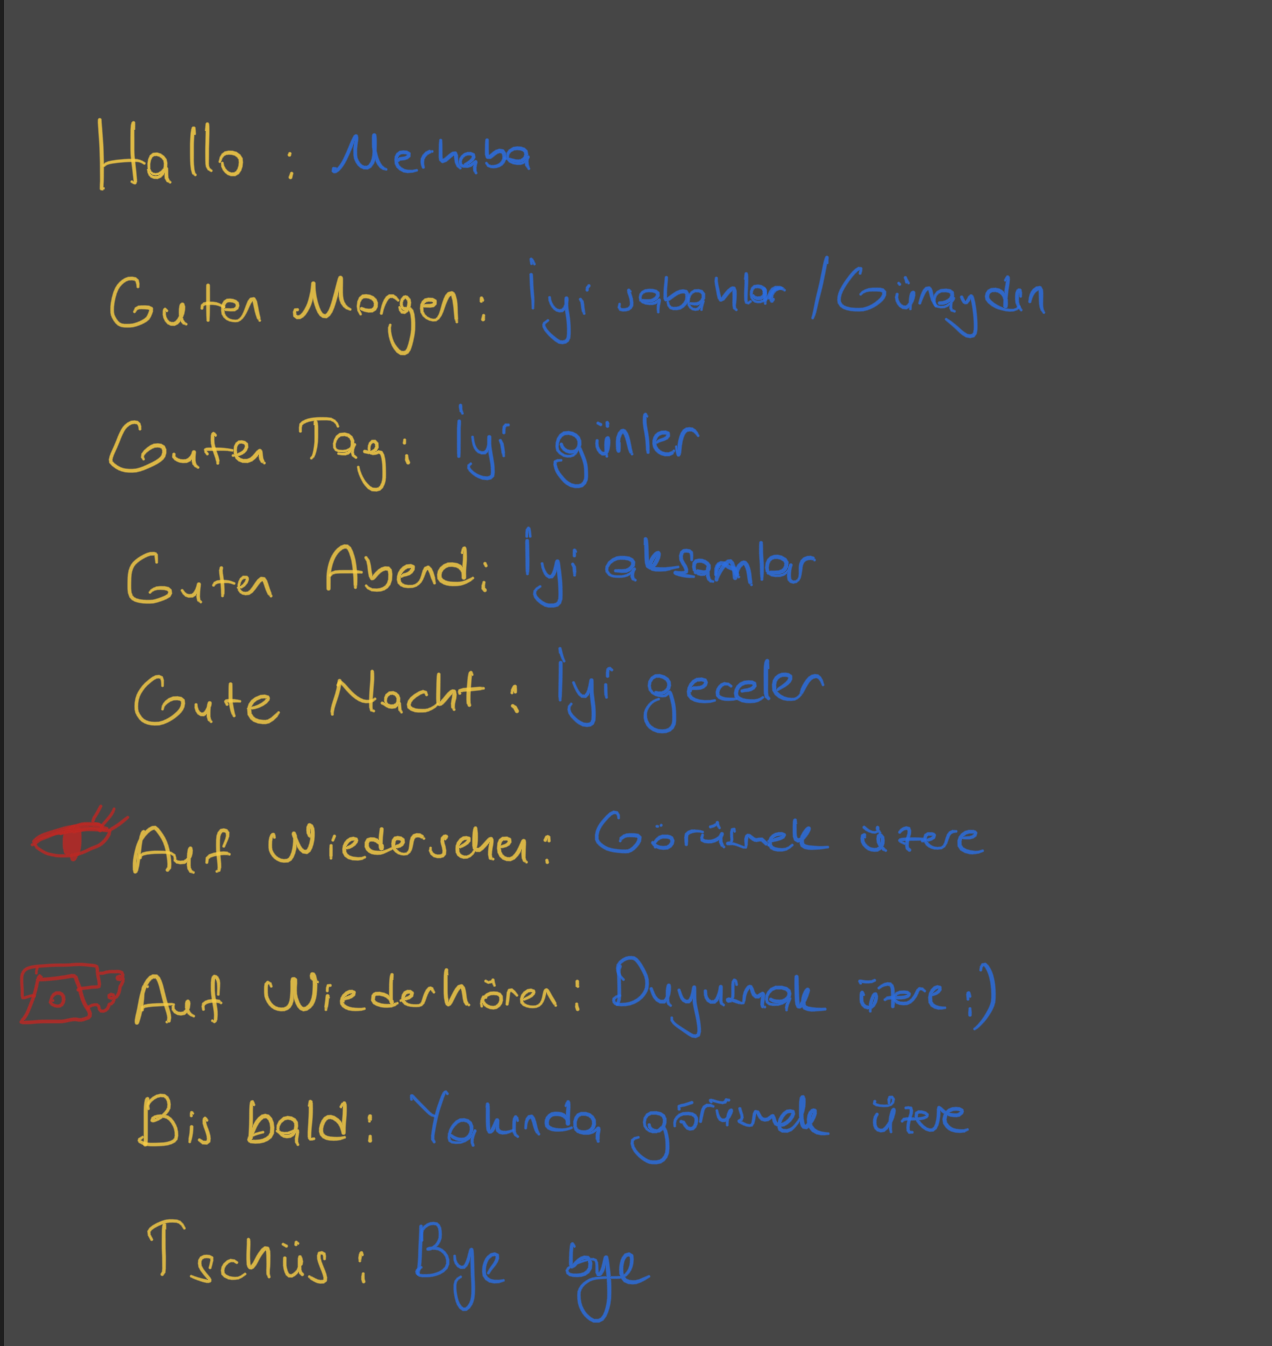 Hallo : Merhaba
Guten Morgen : İyi sabahlar / Günaydın
Guten Tag : İyi günler
Guten Abend : İyi aksamlar
Gute Nacht : İyi geceler
Auf Wiedersehen : Görüsmek üzere
Auf Wiederhören : Duyusmak üzere :)
Bis bald : Yakında görüsmek üzere
Tschüs : Bye bye